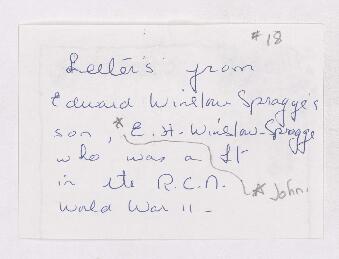 #18
Letter's from
Edward Winslow-Spragge's
son, * E. H. Winslow-Spragge
who was a Lt
in the R.C.N.
World War II -
* John.